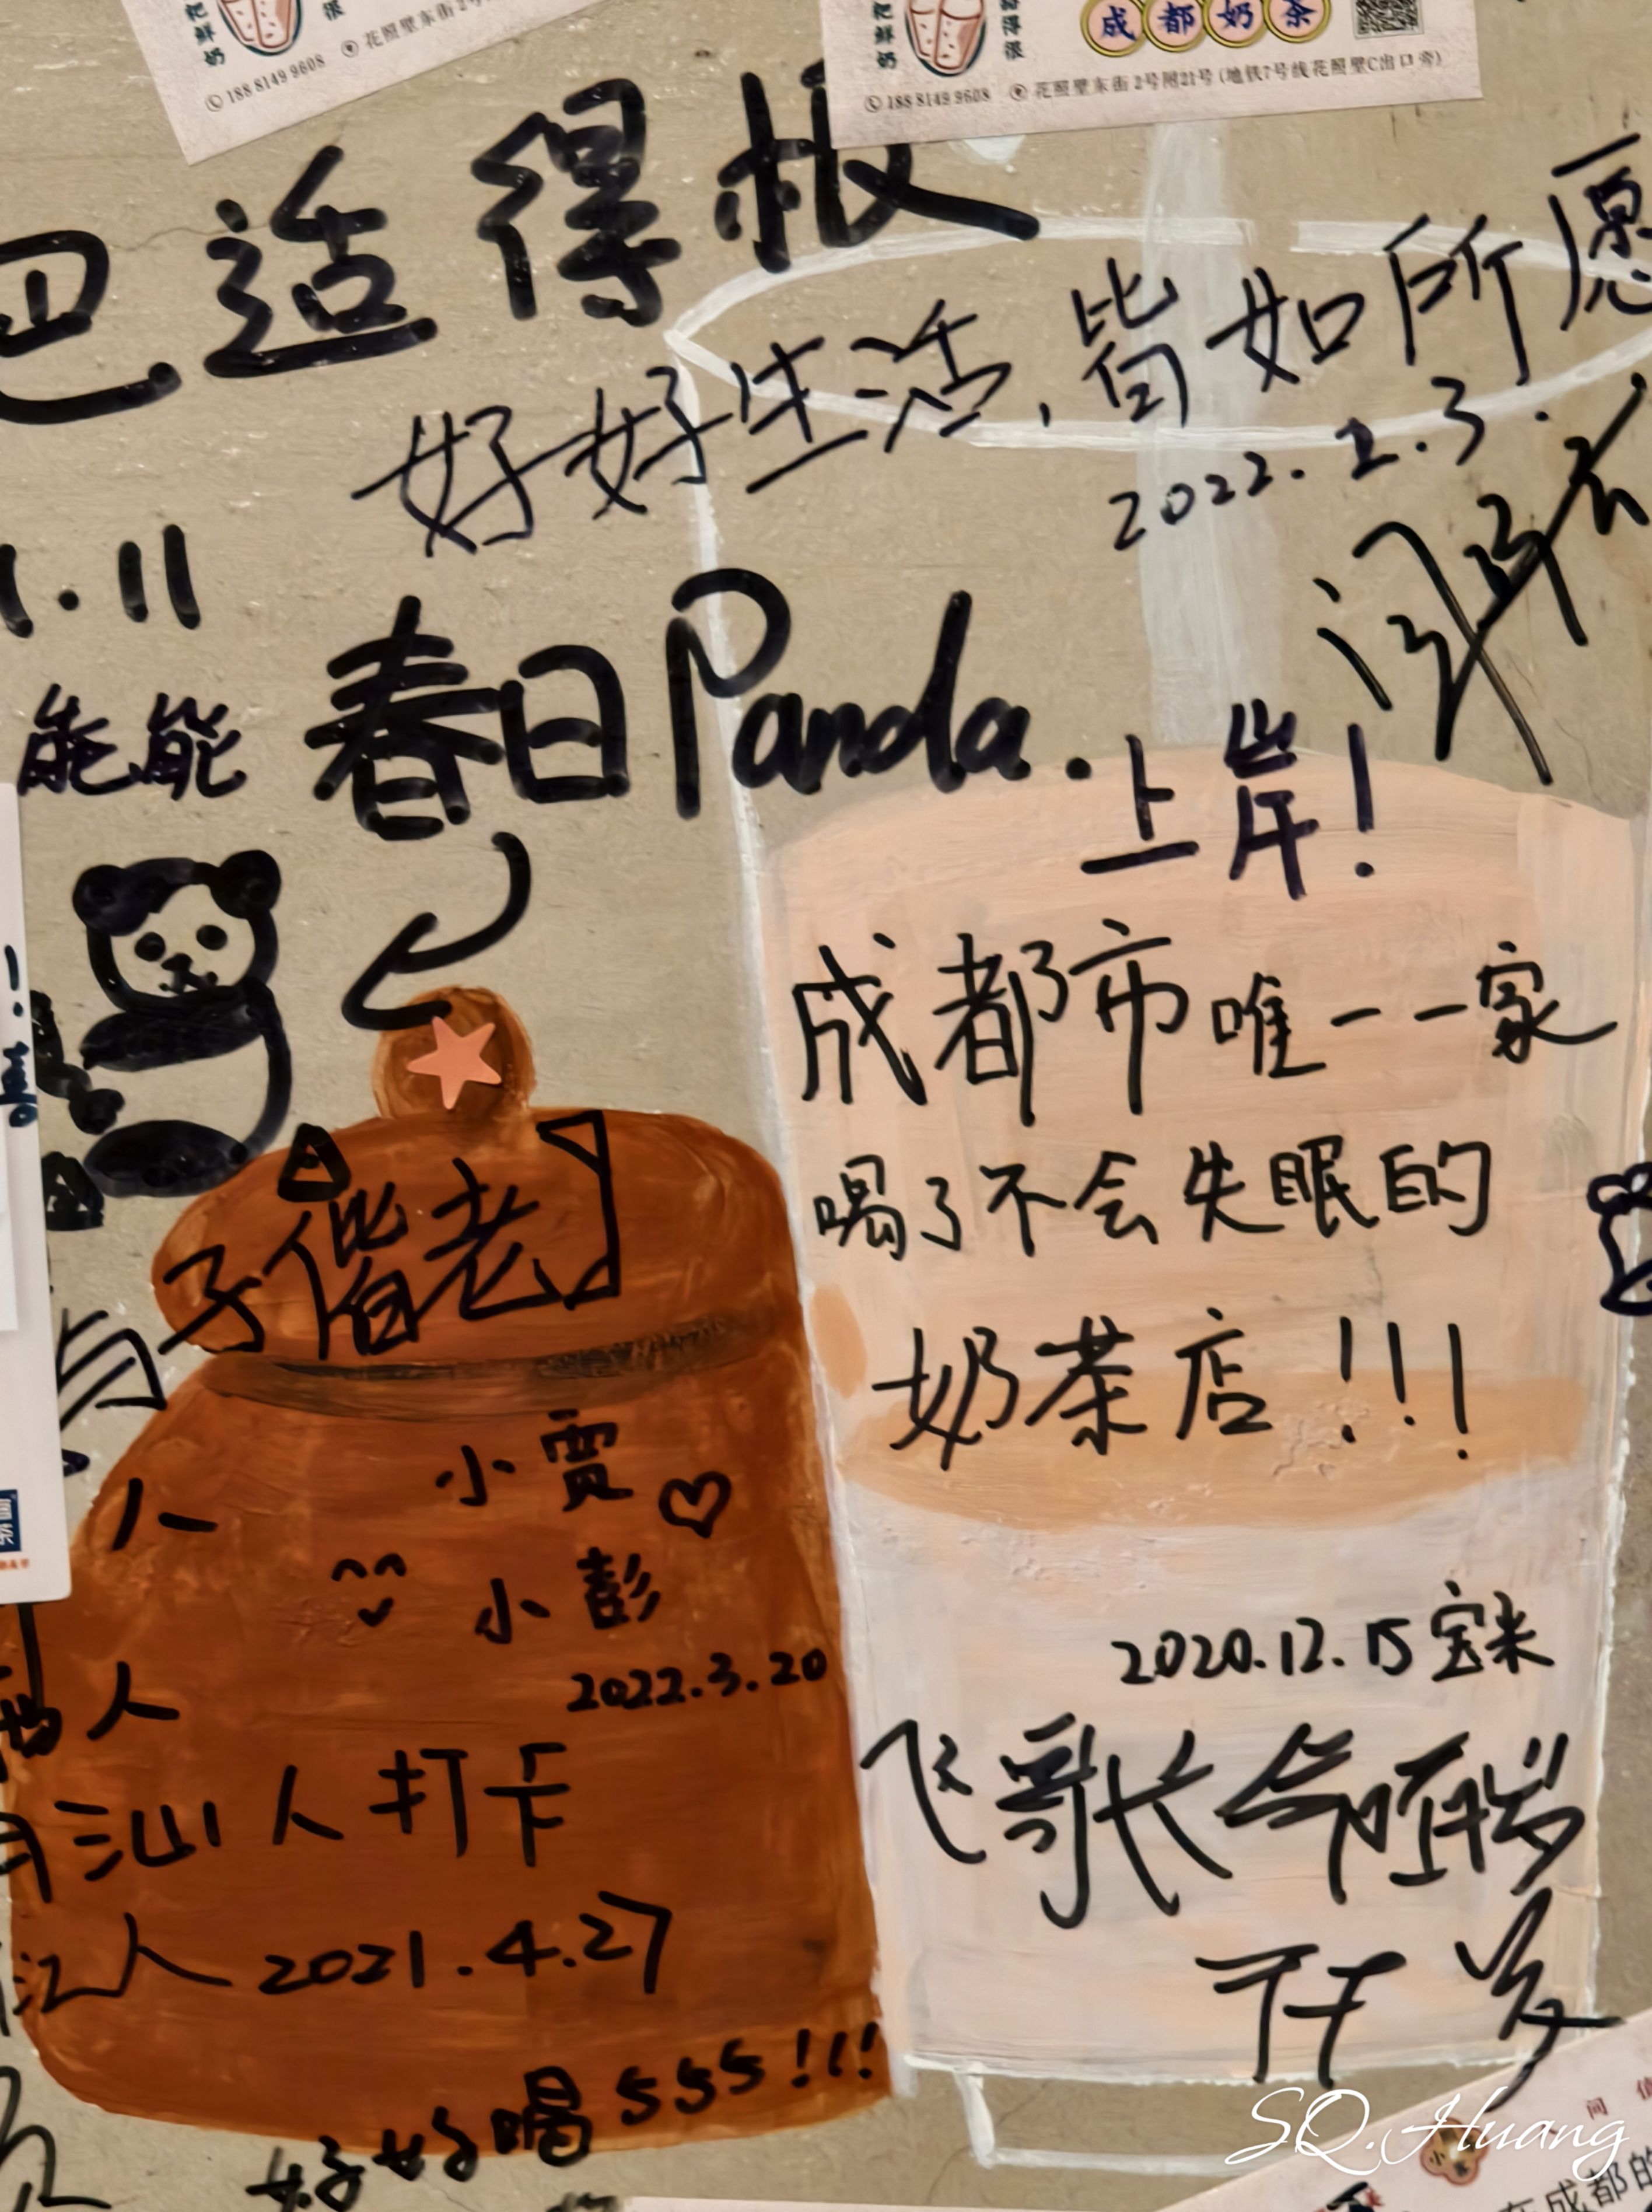 把鲜奶
188 8149 9608
成都奶茶
188 8149 9608 花照壁东街2号附21号(地铁7号线花照壁C出口旁)
巴适得板
好好生活,皆如所愿
2022.2.3.
.11
能能
春日Panda.
上岸!
成都市唯一一家
喝了不会失眠的
奶茶店!!!
与子偕老
小贾
小彭
2022.3.20
人
人
汕人打卡
江人 2021.4.27
好好喝555!!!
2020.12.15 宝米
飞哥长命百岁
开开
SQ.Huang